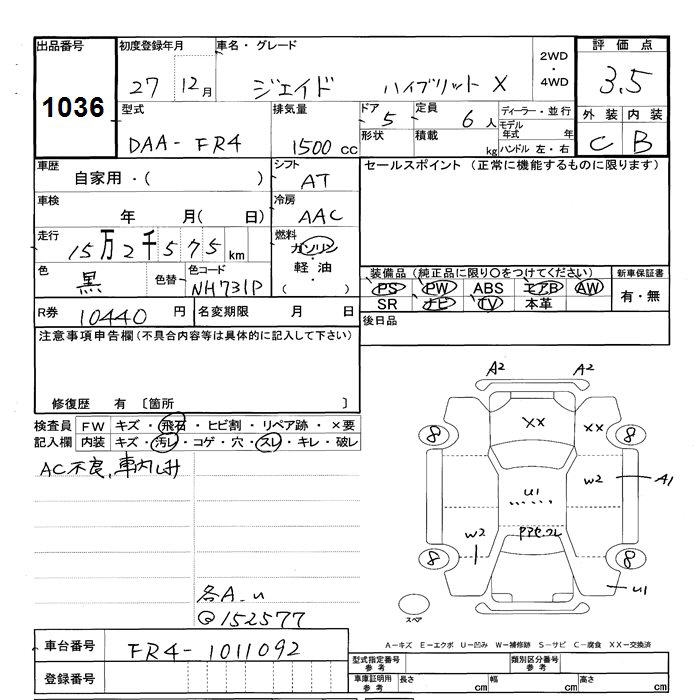 出品番号
1036
初度登録年月
27 12月
車名・グレード
ジェイド ハイブリット X
2WD
・
4WD
評価点
3.5
型式
DAA-FR4
排気量
1500 cc
ドア 5
形状
定員 6人
積載 kg
ディーラー・並行
モデル
年式 年
ハンドル 左・右
外装 内装
C B
車歴
自家用・( )
シフト
AT
セールスポイント (正常に機能するものに限ります)
車検
年 月( 日)
冷房
AAC
走行
15万2千575km
燃料
ガソリン
・
軽油
・
( )
色
黒
色替
色コード
NH731P
装備品 (純正品に限り○をつけてください)
PS PW ABS エアB AW
SR ナビ TV 本革
新車保証書
有・無
R券 10440 円
名変期限 月 日
後日品
注意事項申告欄 (不具合内容等は具体的に記入して下さい)
修復歴 有 〔箇所 〕
検査員
記入欄
FW キズ・飛石・ヒビ割・リペア跡・×要
内装 キズ・汚レ・コゲ・穴・スレ・キレ・破レ
AC不良、車内シミ
各A_u
Q152577
A2 A2
XX XX
8 8
W2 A1
U1
W2
アアセコレ
8 8
U1
スペア
A-キズ E-エクボ U-凹み W-補修跡 S-サビ C-腐食 XX-交換済
車台番号 FR4-1011092
登録番号
型式指定番号
参考
類別区分番号
参考
車庫証明用
参考
長さ cm
幅 cm
高さ cm